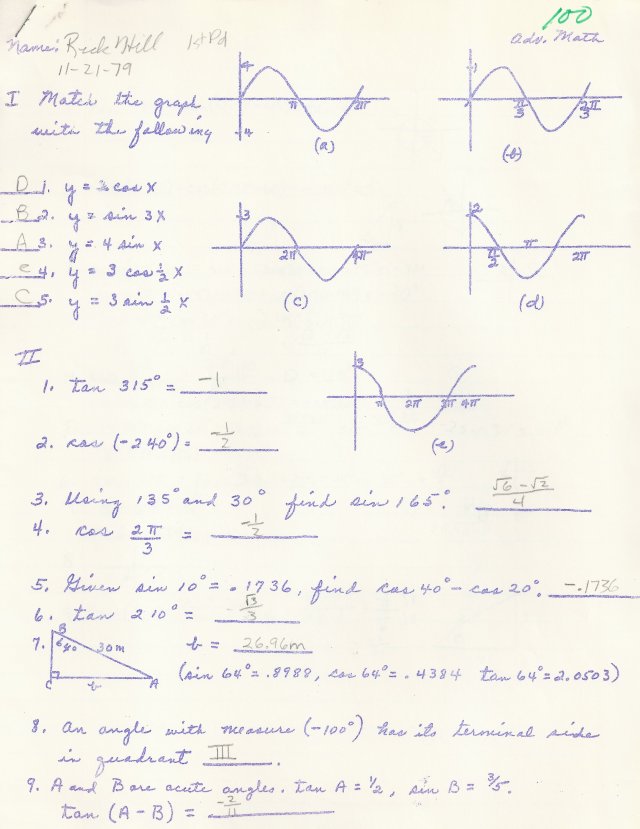 100
Name: Rick Hill 1st Pd adv. Math
11-21-79
I Match the graph
with the following
4
-4
π
2π
(a)
1
π/3
2π/3
(b)
D 1. y = 2 cos x
B 2. y = sin 3x
A 3. y = 4 sin x
e 4. y = 3 cos ½ x
C 5. y = 3 sin ½ x
3
2π
4π
(c)
2
π/2
π
2π
(d)
II
3
π
2π
3π
4π
(e)
1. tan 315° = -1
2. cos (-240°) = -1/2
3. Using 135° and 30° find sin 165°. √6 - √2 / 4
4. cos 2π/3 = -1/2
5. Given sin 10° = .1736, find cos 40° - cos 20°. -.1736
6. tan 210° = √3/3
7. B 64° 30m C b A b = 26.96m
(sin 64° = .8988, cos 64° = .4384 tan 64° = 2.0503)
8. An angle with measure (-100°) has its terminal side
in quadrant III.
9. A and B are acute angles. tan A = ½, sin B = 3/5.
tan (A - B) = -2/11